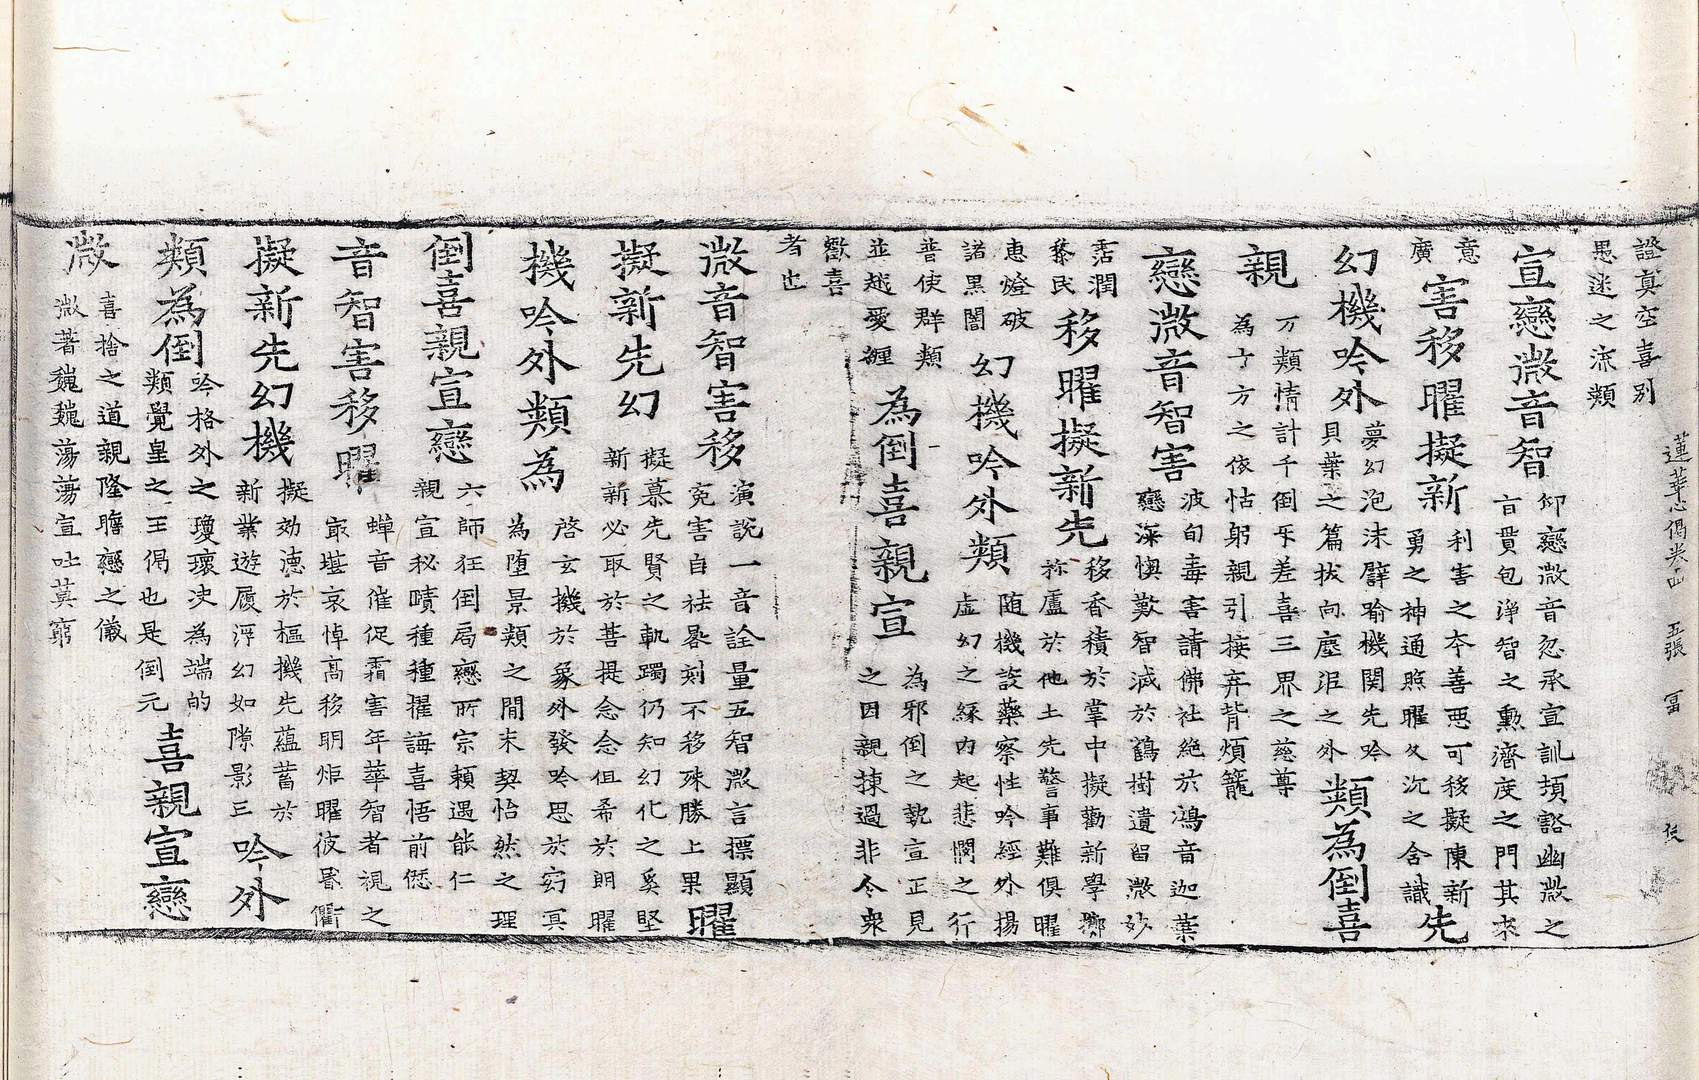 證真空喜別
愚迷之流類
蓮華心偈卷四 五張 冨
宣戀微音智
仰戀微音忽承宣訓頊豁幽微之
盲貫包淨智之勳濟度之門其來
意
廣
害移曜擬新
利害之夲善悪可移擬陳新
勇之神通照曜久沉之含識
先
幻機吟外
夢幻泡沫譬喻機関先吟
貝葉之篇拔向塵泥之外
類為倒喜
親
万類情計千倒乎差喜三界之慈尊
為十方之依怙躬親引接弃背煩籠
戀微音智害
波旬毒害請佛社絶於鴻音迦葉
戀深懊歎智滅於鶴樹遺留微妙
霑潤
黎民
移曜擬新先
移香積於掌中擬勸新學擲
祢廬於他土先警事難俱曜
恵燈破
諸黒闇
幻機吟外類
随機設藥察性吟經外揚
虚幻之緣内起悲憫之行
普使群類
並越愛纒
為倒喜親宣
為邪倒之執宣正見
之因親揀過非令衆
歡喜
者也
微音智害移
演說一音詮量五智微言摽顯
寃害自祛晷刻不移殊勝上果
曜
擬新先幻
擬慕先賢之軌躅仍知幻化之奚堅
新新必取於菩提念念但希於朗曜
機吟外類為
啓玄機於象外發吟思於窈冥
為墮景類之間未契怡然之理
倒喜親宣戀
六師狂倒扃戀所宗頼遇能仁
親宣秘賾種種擢誨喜悟前愆
音智害移曜
蟬音催促霜害年華智者視之
㝡堪哀悼髙移明炬曜彼昬衢
擬新先幻機
擬効德於樞機先蘊蓄於
新業遊履浮幻如隙影三
吟外
類為倒
吟格外之瓊瓌決為端的
類覺皇之王偈也是倒元
喜親宣戀
微
喜捨之道親隆瞻戀之儀
微著巍巍蕩蕩宣吐莫窮